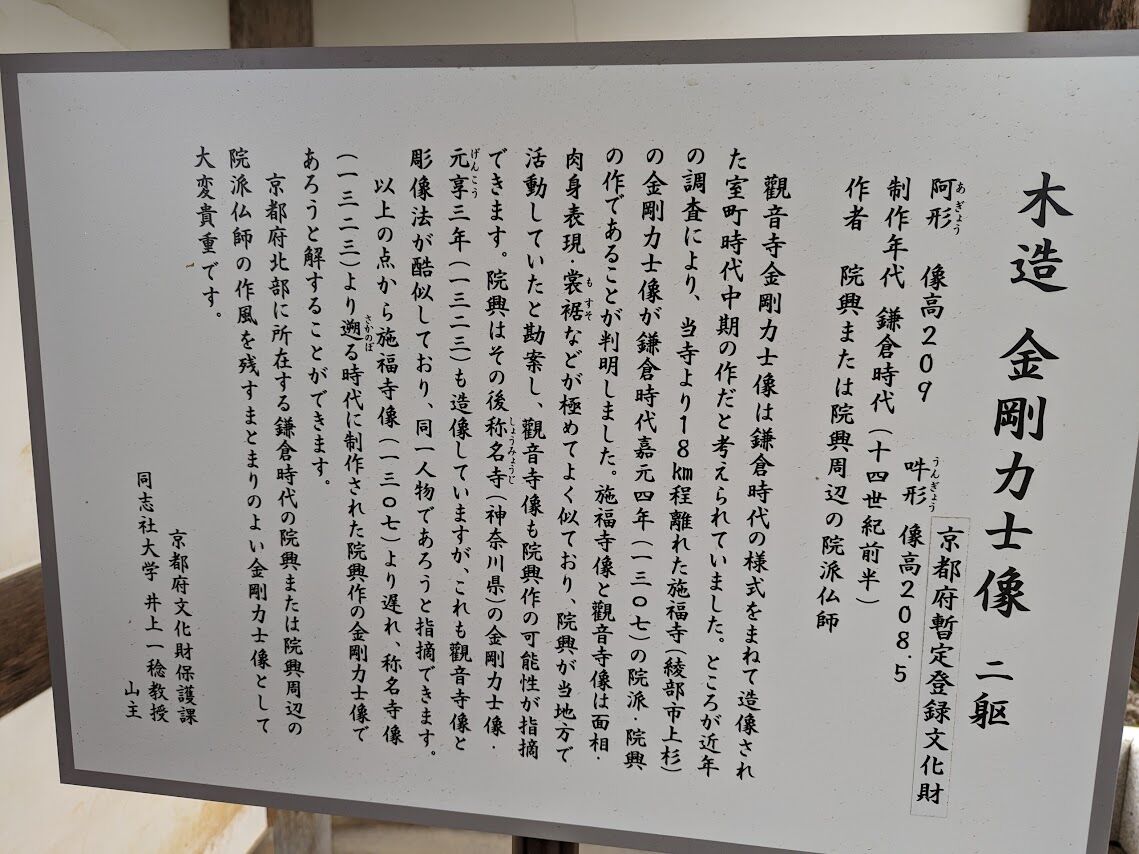 木造 金剛力士像 二躯
京都府暫定登録文化財
阿形 像高209 吽形 像高208.5
あぎょう うんぎょう
制作年代 鎌倉時代(十四世紀前半)
作者 院興または院興周辺の院派仏師
觀音寺金剛力士像は鎌倉時代の様式をまねて造像され
た室町時代中期の作だと考えられていました。ところが近年
の調査により、当寺より18km程離れた施福寺(綾部市上杉)
の金剛力士像が鎌倉時代嘉元四年(一三〇七)の院派・院興
の作であることが判明しました。施福寺像と觀音寺像は面相・
肉身表現・裳裾などが極めてよく似ており、院興が当地方で
もすそ
活動していたと勘案し、觀音寺像も院興作の可能性が指摘
できます。院興はその後称名寺(神奈川県)の金剛力士像・
しょうみょうじ
元享三年(一三二三)も造像していますが、これも觀音寺像と
げんこう
彫像法が酷似しており、同一人物であろうと指摘できます。
以上の点から施福寺像(一三〇七)より遅れ、称名寺像
(一三二三)より遡る時代に制作された院興作の金剛力士像で
さかのぼ
あろうと解することができます。
京都府北部に所在する鎌倉時代の院興または院興周辺の
院派仏師の作風を残すまとまりのよい金剛力士像として
大変貴重です。
京都府文化財保護課
同志社大学 井上一稔教授
山主